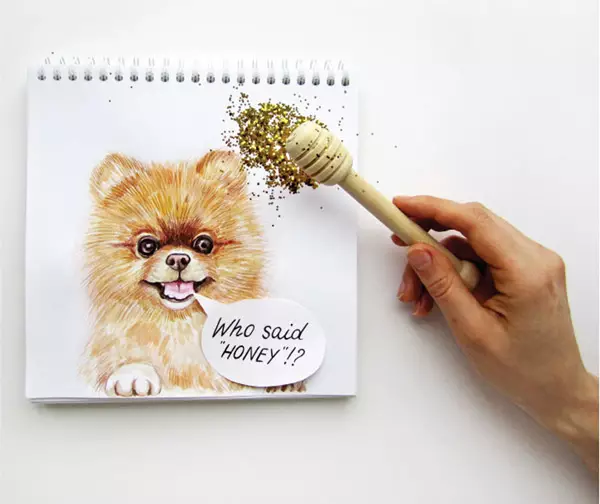 Who said
"HONEY"!?